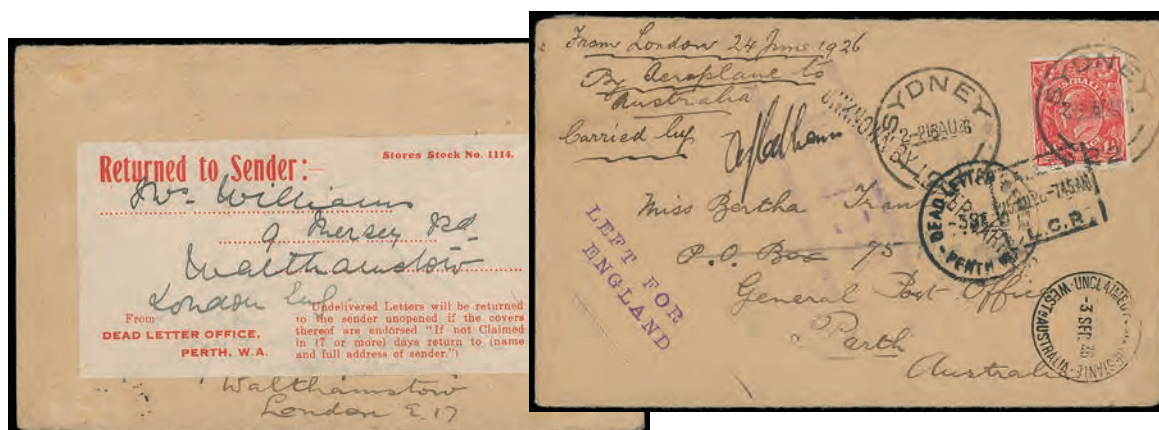 Returned to Sender:-
Stores Stock No. 1114.
Williams
9 Mersey Rd
Walthamstow
London Eng
From
DEAD LETTER OFFICE,
PERTH, W.A.
Undelivered Letters will be returned
to the sender unopened if the covers
thereof are endorsed "If not Claimed
in (7 or more) days return to (name
and full address of sender.")
Walthamstow
London E.17
From London 24 June 1926
By Aeroplane to
Australia
Carried by
UNKNOWN BY
SYDNEY
SYDNEY
AUSTRALIA
DEAD LETTER
PERTH
7.45AM
Miss Bertha
P.O. Box 75
General Post Office
Perth
Australia
LEFT FOR
ENGLAND
UNCLAIMED
3 SEP 26
WEST AUSTRALIA